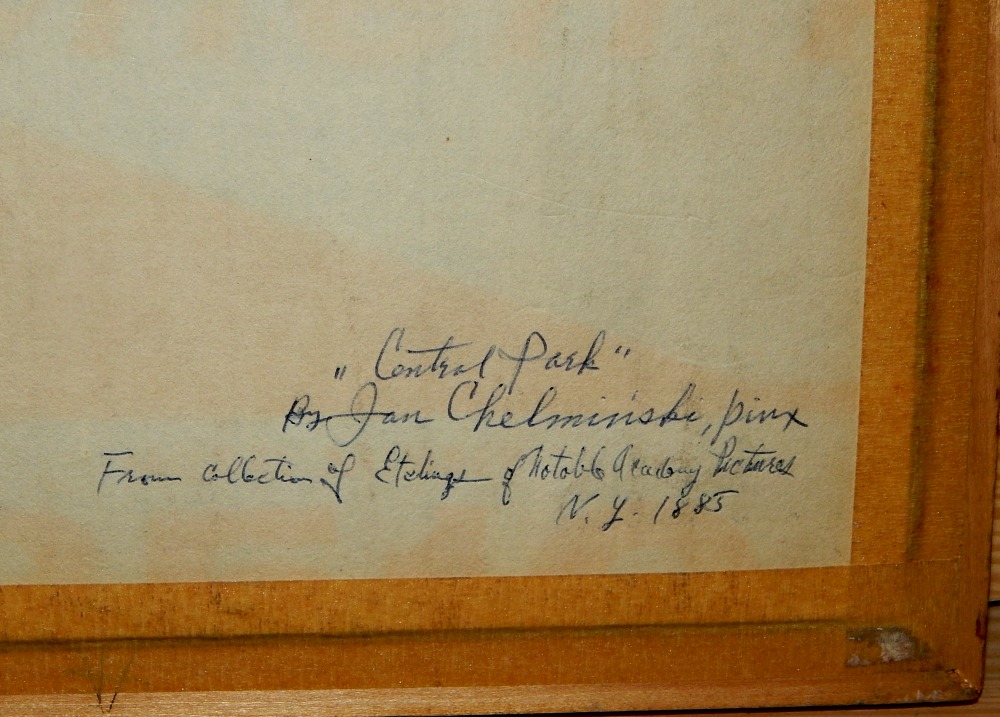 "Central Park"
By Jan Chelminski, pinx
From collection of Etchings of Notable Academy Pictures
N.Y. 1885